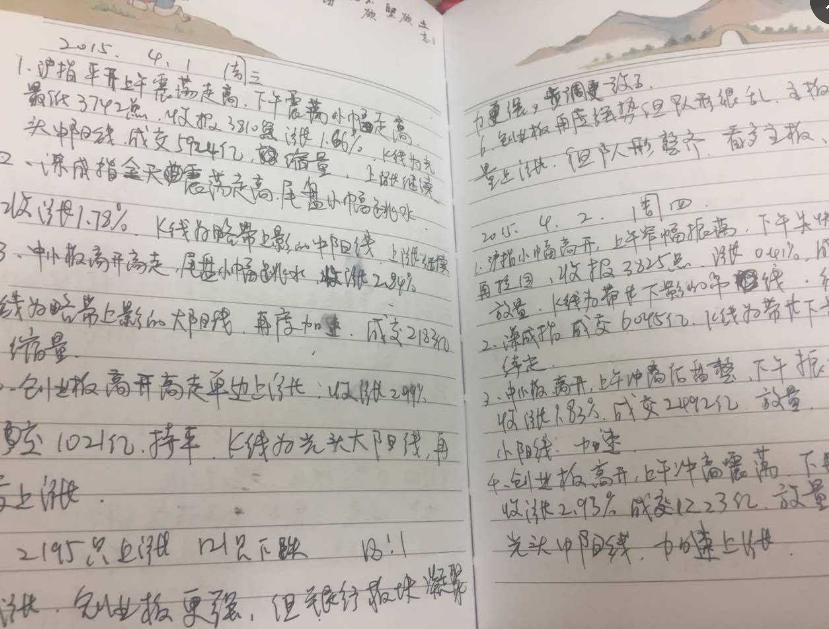 2015. 4. 1 周三
1. 沪指平开上午震荡走高. 下午震荡小幅走高.
最低3742点. 收报3810点 涨1.66%. K线为光
头中阳线. 成交5924亿, 缩量. 上涨继续
2. 深成指全天震荡走高. 尾盘小幅跳水.
收涨1.78%. K线为略带上影的中阳线. 上涨继续
3. 中小板高开高走, 尾盘小幅跳水. 收涨2.84%
线为略带上影的大阳线. 再度加速. 成交2183亿
缩量.
创业板高开高走单边上涨: 收涨2.99%
1021亿. 持平. K线为光头大阳线, 再
上涨.
2195只上涨 121只下跌 18:1
涨. 创业板更强, 但银行板块凝聚
力更强, 步调更一致了.
创业板再度强势但队形很乱. 主板
量上涨. 但队形整齐. 看多主板、
2015. 4. 2. 周四.
1. 沪指小幅高开, 上午窄幅振荡, 下午
再拉回, 收报3825点 涨0.41%,
放量. K线为带长下影的 线.
2. 深成指 成交6045亿. K线为带长下
待定.
3. 中小板高开, 上午冲高后盘整, 下午振
收涨1.83%. 成交2492亿 放量.
小阳线. 加速
4. 创业板高开, 上午冲高震荡 下
收涨2.93% 成交1223亿. 放量
光头中阳线. 加速上涨.